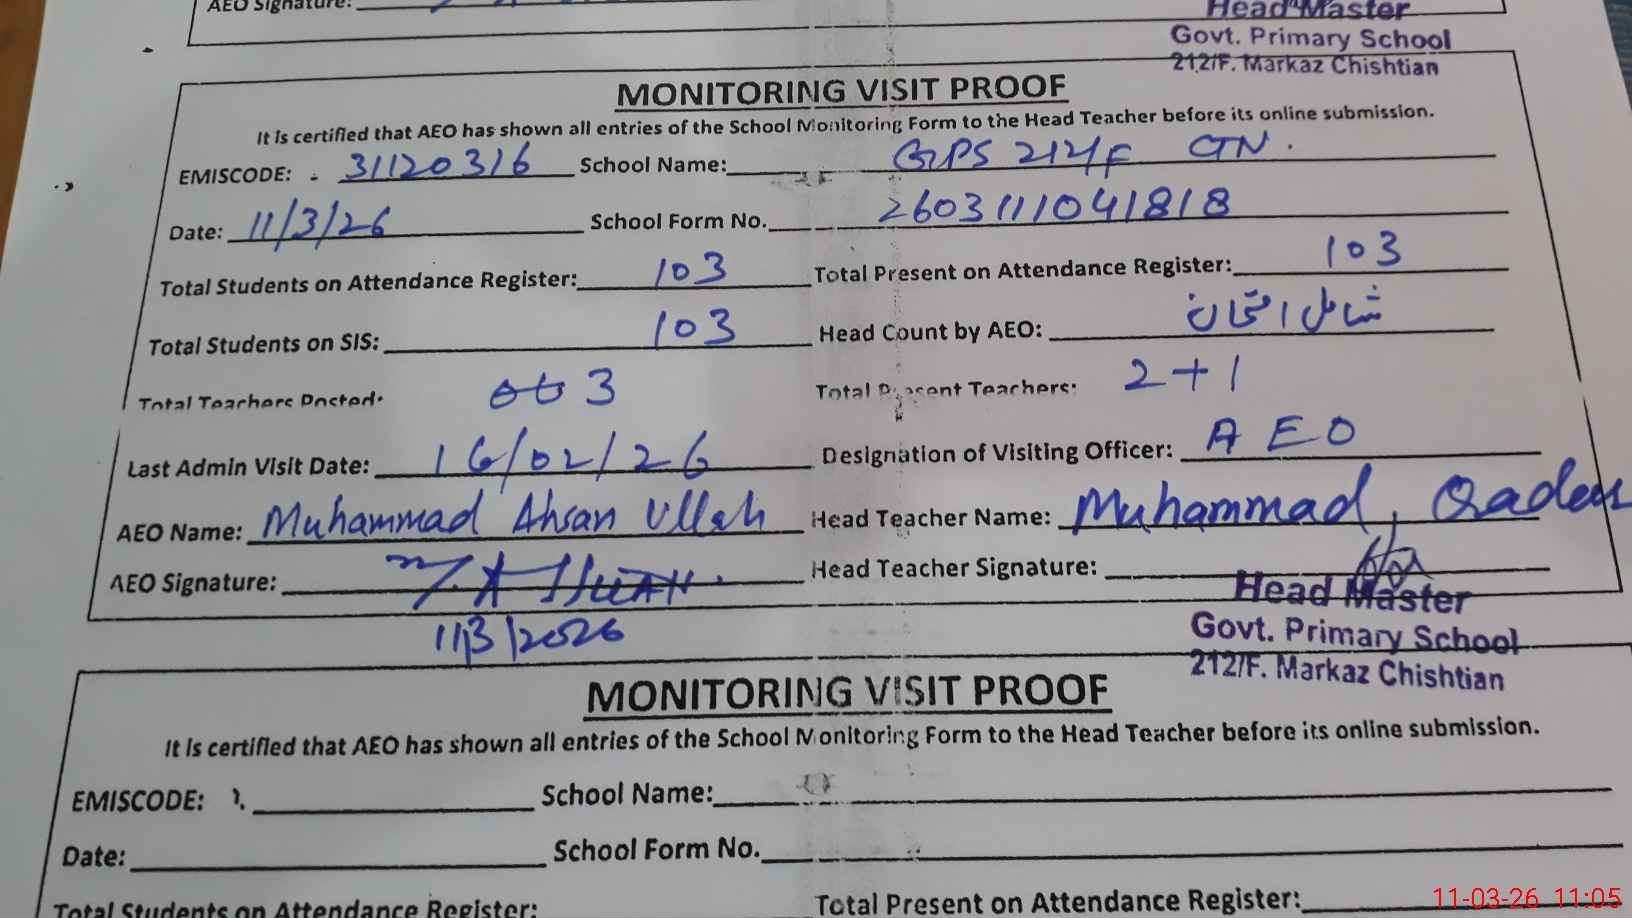 AEO Signature:
Head Master
Govt. Primary School
212/F. Markaz Chishtian
MONITORING VISIT PROOF
It is certified that AEO has shown all entries of the School Monitoring Form to the Head Teacher before its online submission.
EMISCODE: 31120316 School Name: GPS 212/F CTN.
Date: 11/3/26 School Form No. 2603111041818
Total Students on Attendance Register: 103 Total Present on Attendance Register: 103
Total Students on SIS: 103 Head Count by AEO: شامل امتحان
Total Teachers Posted: 3 Total Present Teachers: 2+1
Last Admin Visit Date: 16/02/26 Designation of Visiting Officer: AEO
AEO Name: Muhammad Ahsan Ullah Head Teacher Name: Muhammad, Qadeer
AEO Signature: Head Teacher Signature:
11/3/2026
Head Master
Govt. Primary School
212/F. Markaz Chishtian
MONITORING VISIT PROOF
It is certified that AEO has shown all entries of the School Monitoring Form to the Head Teacher before its online submission.
EMISCODE: School Name:
Date: School Form No.
Total Students on Attendance Register: Total Present on Attendance Register:
11-03-26 11:05